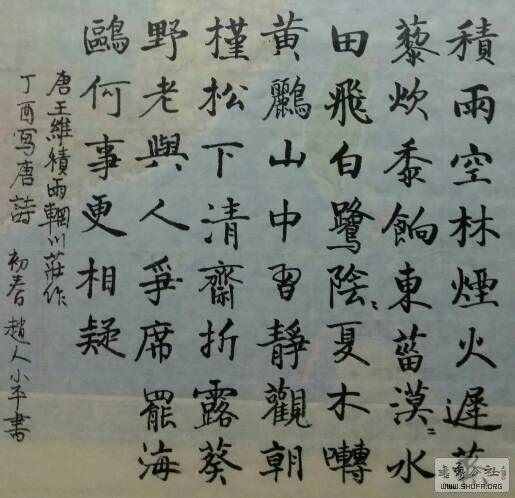 積雨空林煙火遲蒸
藜炊黍餉東菑漠〻水
田飛白鷺陰〻夏木囀
黄鸝山中習靜觀朝
槿松下清齋折露葵
野老與人爭席罷海
鷗何事更相疑
唐王維積雨輞川莊作
丁酉写唐詩 初春 趙人小平書
WWW.SHUFA.ORG